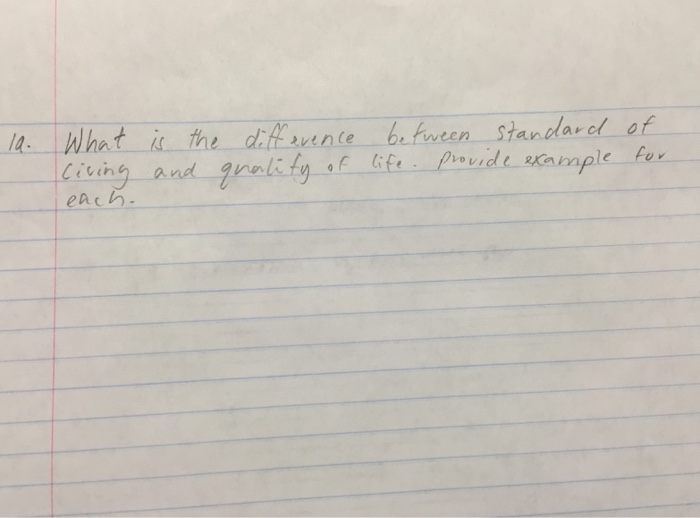 1a. What is the difference between standard of
living and quality of life. Provide example for
each.